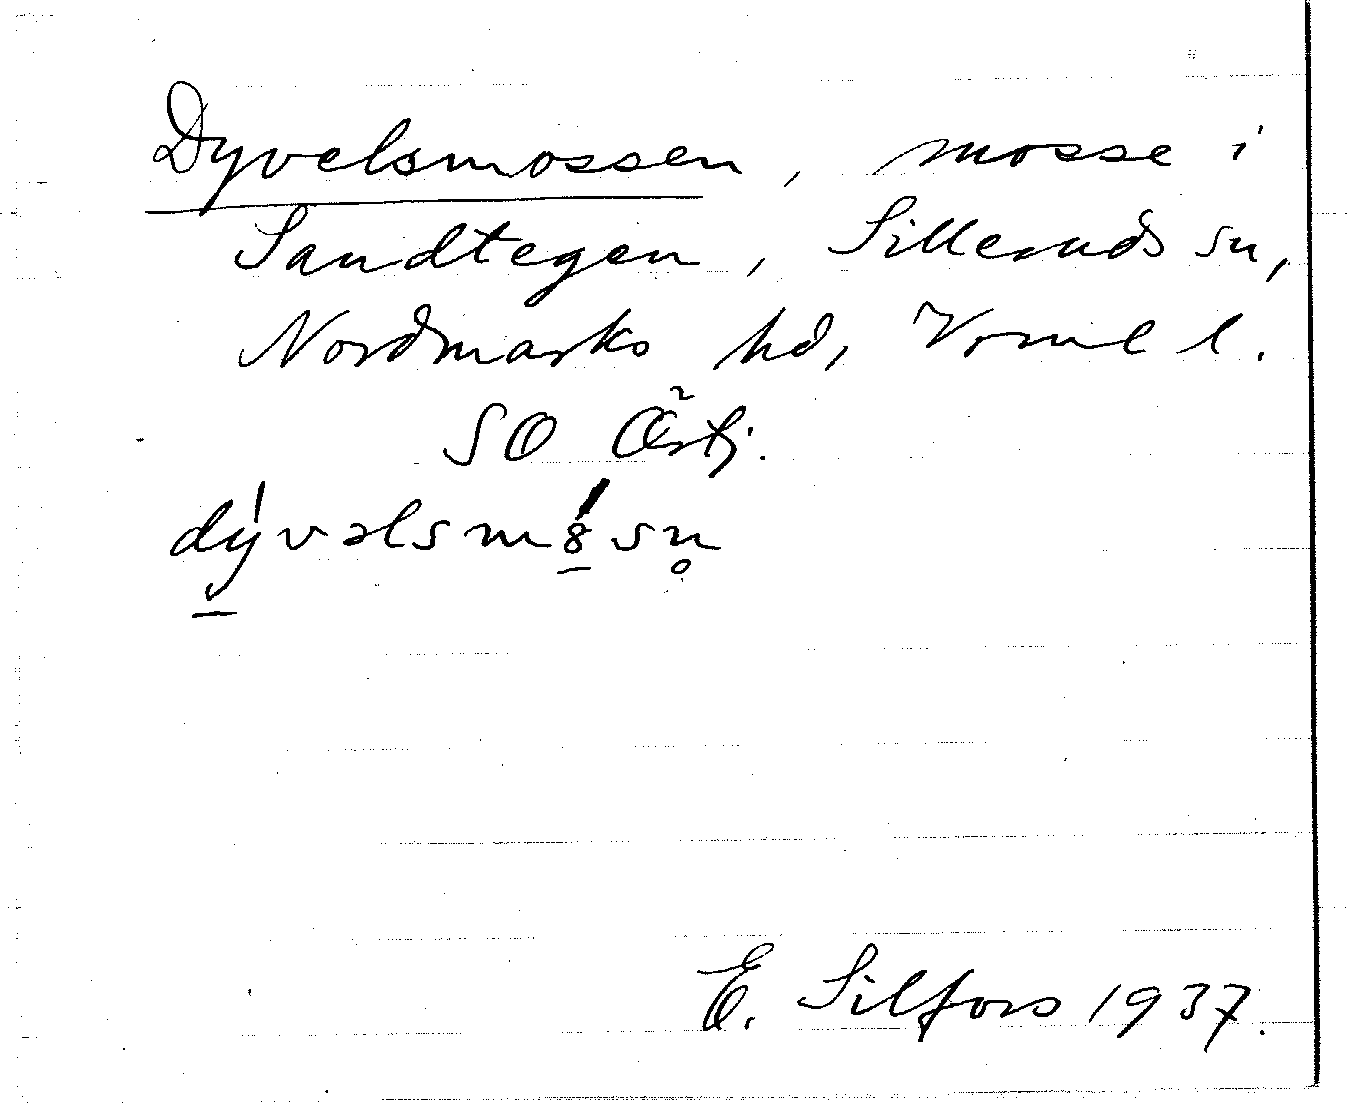 Dyvelsmossen, mosse i
Sandtegen, Silleruds sn,
Nordmarks hd, Vrml l.
SO Örtj.
dý̲vəlsm8̲́sn̥
E. Silfors 1937.